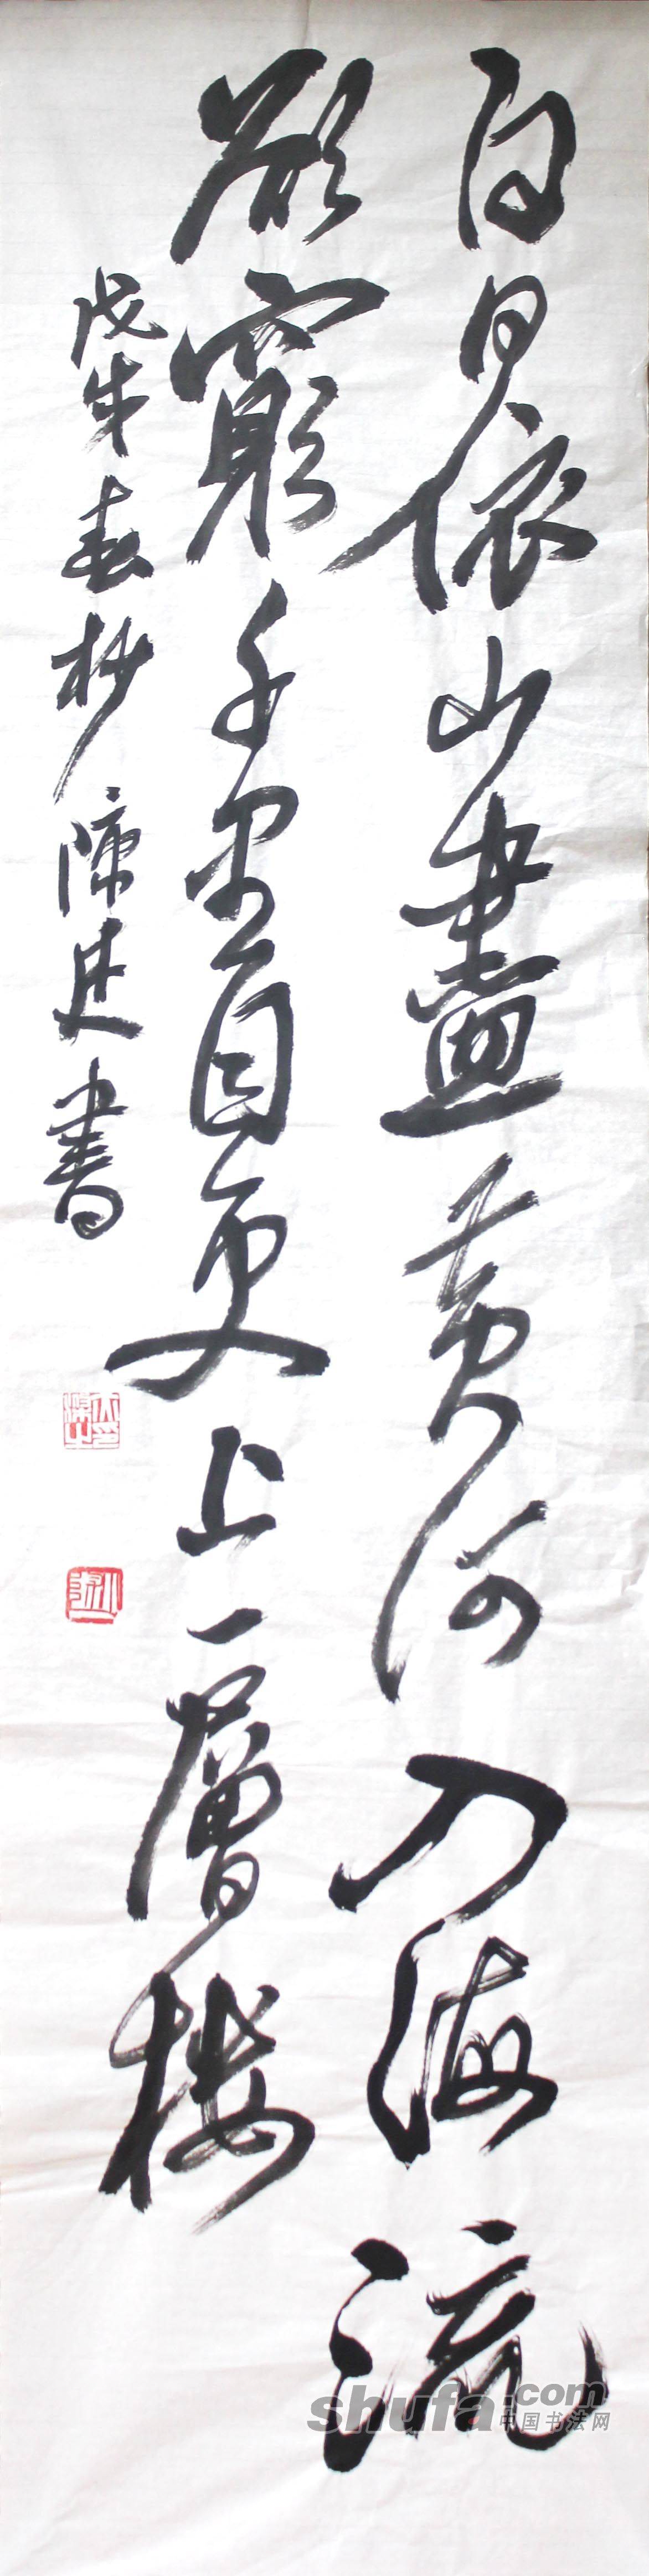 白日依山盡黄河入海流
欲窮千里目更上一層樓
戊戌春杪陳書
shufa.com
中国书法网